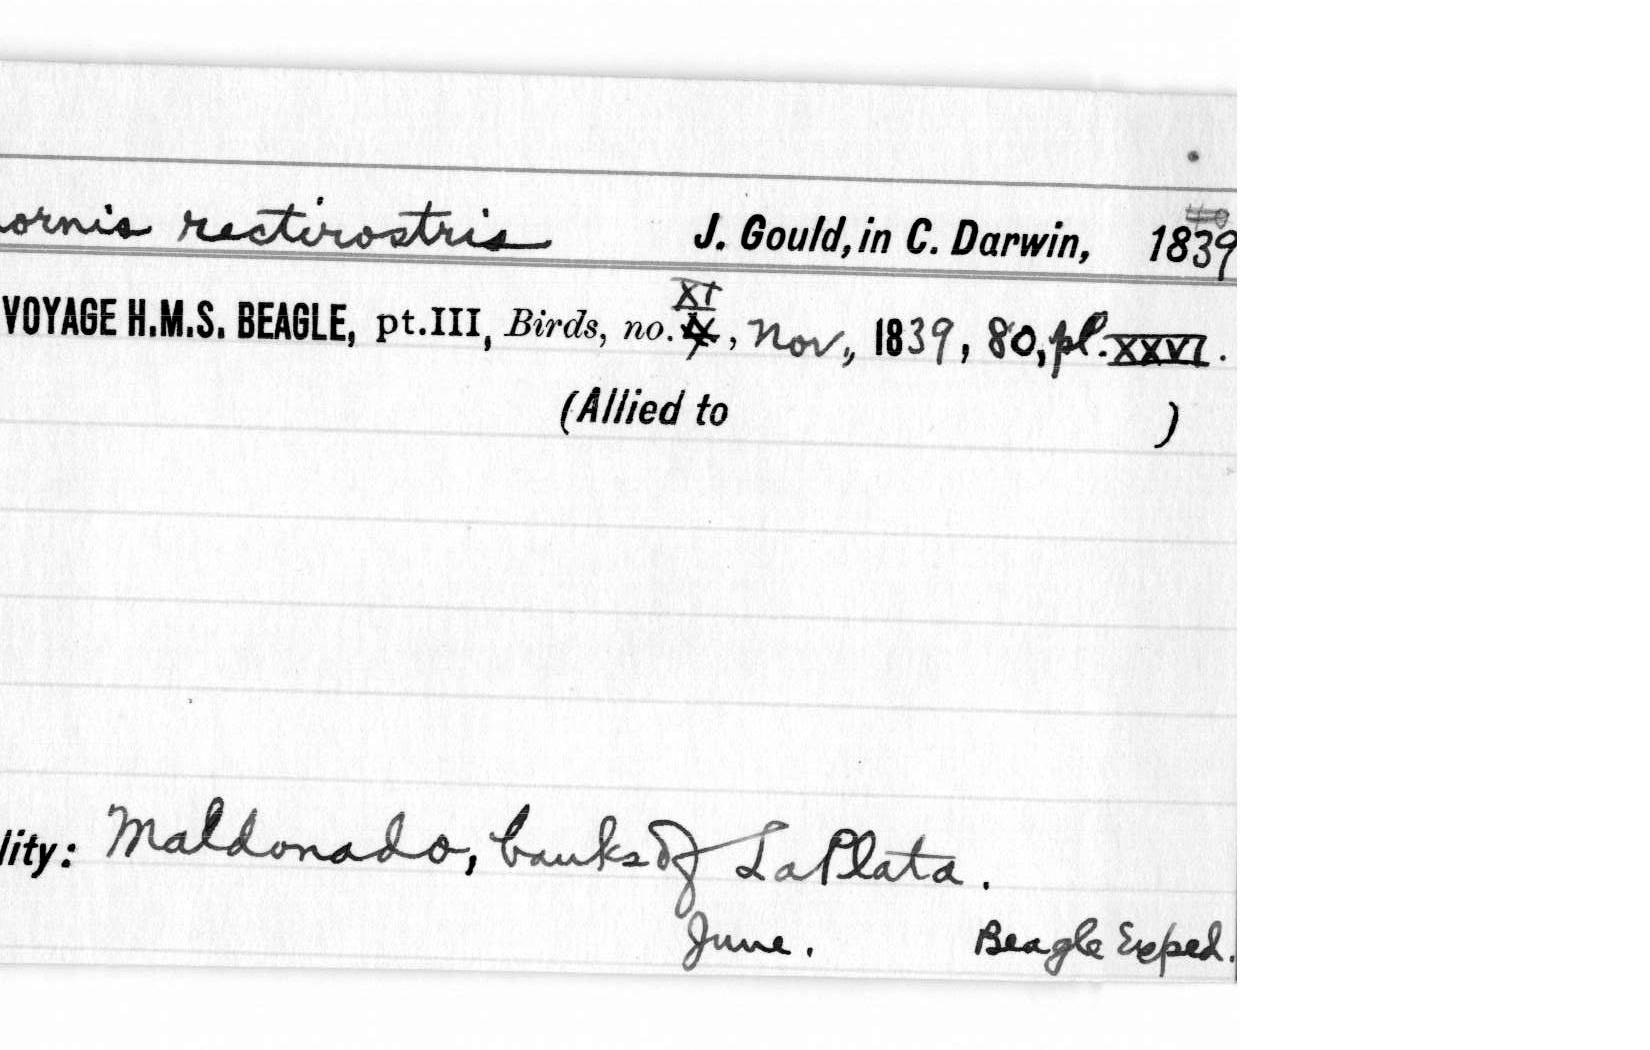 ornis rectirostris J. Gould, in C. Darwin, 1839
VOYAGE H.M.S. BEAGLE, pt.III, Birds, no. XI, Nov., 1839, 80, pl. XXVI.
(Allied to )
lity: Maldonado, banks of La Plata.
June. Beagle Exped.